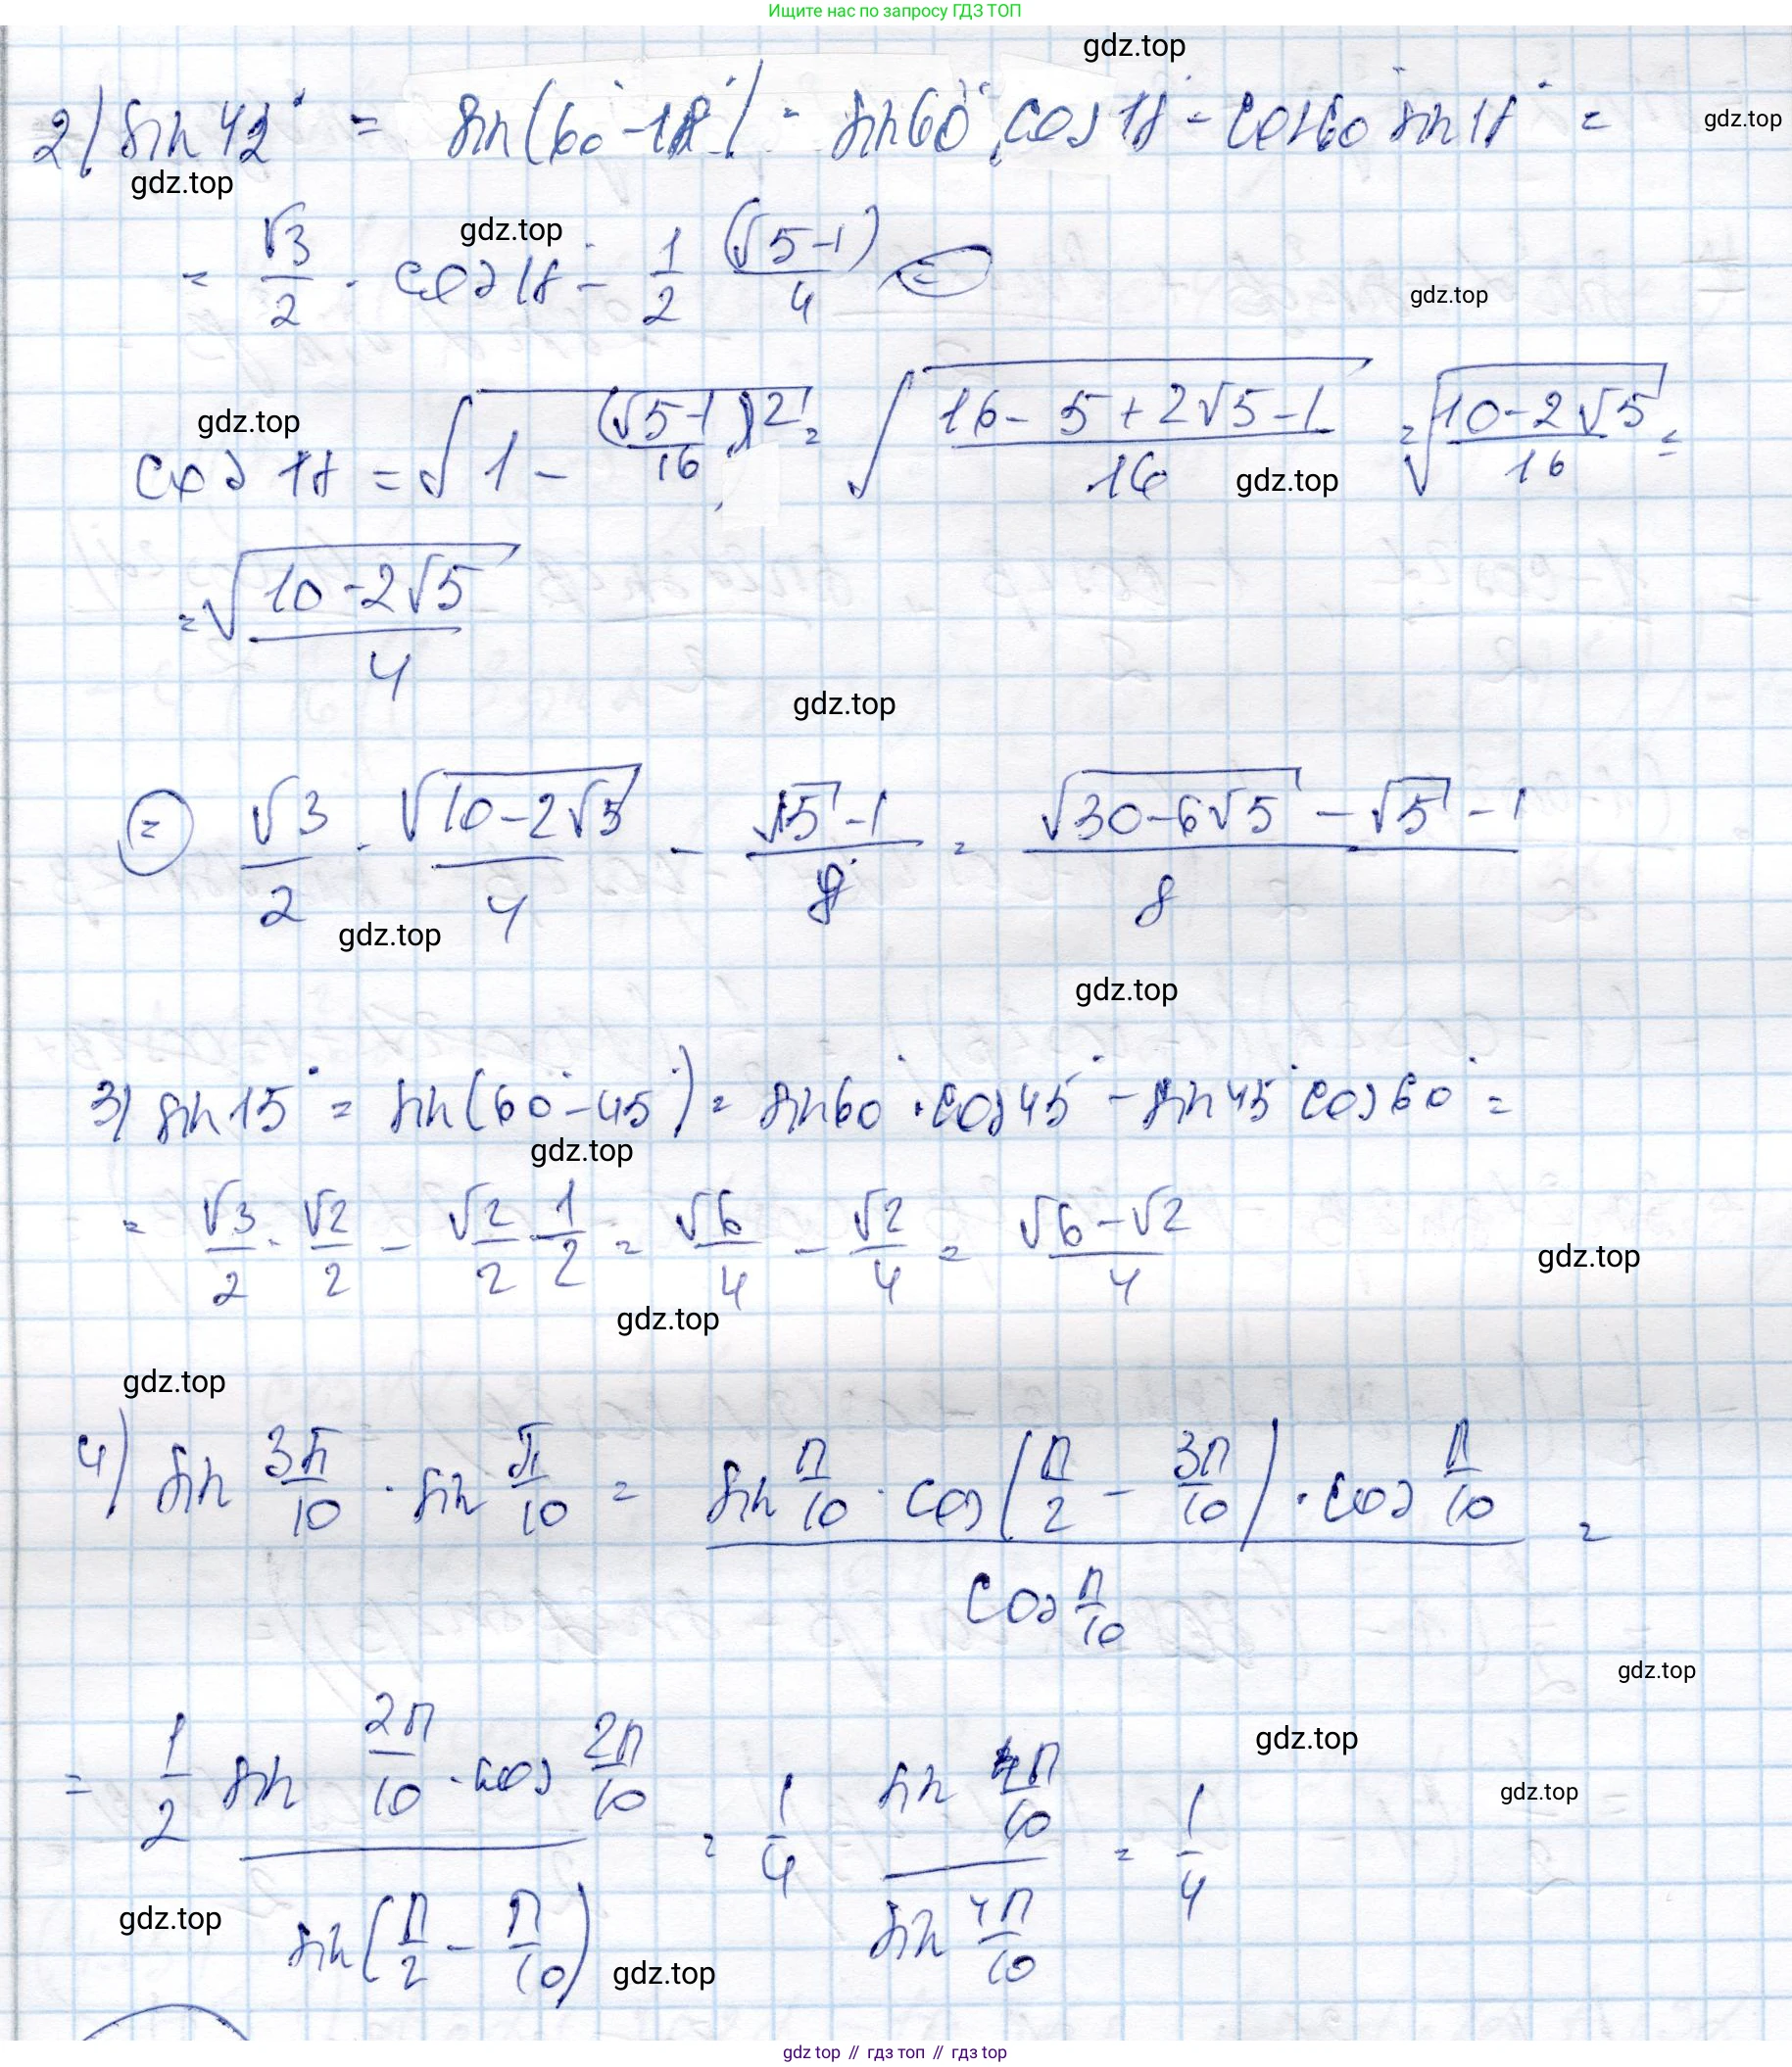 Ищите нас по запросу ГДЗ ТОП
gdz.top
2) sin 42° = sin(60° - 18°) = sin60° cos 18° - cos60° sin 18° =
gdz.top
gdz.top
= √3/2 · cos 18 - 1/2 (√5-1)/4 (=)
gdz.top
gdz.top
gdz.top
cos 18 = √(1 - (√5-1)²/16) = √((16-5+2√5-1)/16) = √((10-2√5)/16) =
gdz.top
gdz.top
= √(10-2√5)/4
gdz.top
(=) √3/2 · √(10-2√5)/4 - (√5-1)/8 = (√(30-6√5) - √5 - 1)/8
gdz.top
gdz.top
3) sin 15° = sin(60° - 45°) = sin60° · cos45° - sin45° cos60° =
gdz.top
= √3/2 · √2/2 - √2/2 · 1/2 = √6/4 - √2/4 = (√6-√2)/4
gdz.top
gdz.top
gdz.top
4) sin 3π/10 · sin π/10 = (sin π/10 · cos(π/2 - 3π/10) · cos π/10)/(cos π/10) =
gdz.top
= 1/2 (sin 2π/10 · cos 2π/10)/(sin(π/2 - π/10)) = 1/4 (sin 4π/10)/(sin 4π/10) = 1/4
gdz.top
gdz.top
gdz.top
gdz.top
gdz top // гдз топ // гдз top